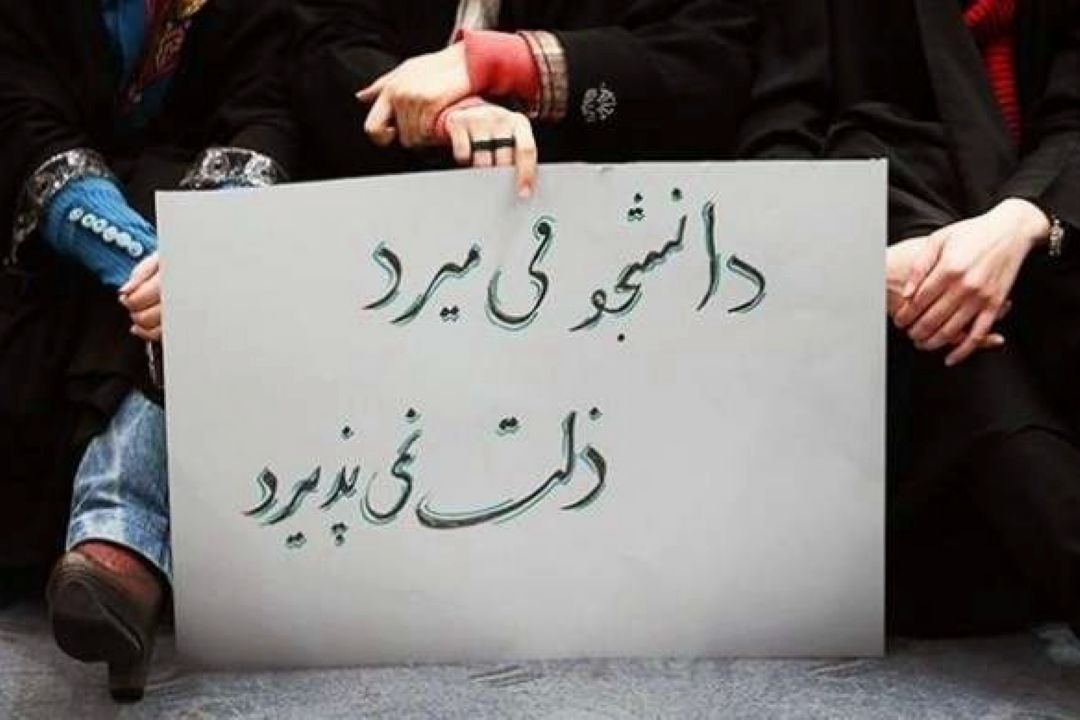 دانشجو می میرد
ذلت نمی پذیرد